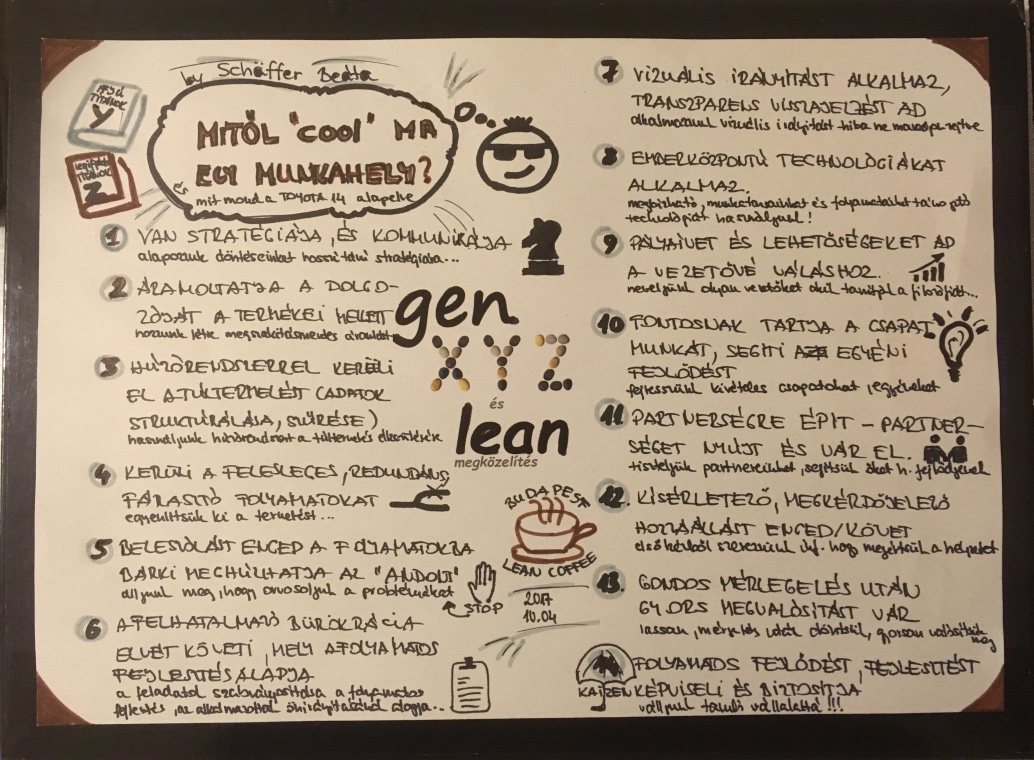 by Schäffer Beáta
APSZ
TITÁNOK
Y
TITÁNOK
Z
MITŐL "cool" MA
EGY MUNKAHELY?
és mit mond a TOYOTA 14 alapelve
1 VAN STRATÉGIÁJA, ÉS KOMMUNIKÁLJA
alapozzuk döntéseinket hosszútávú stratégiába...
2 ÁRAMOLTATJA A DOLGO-
ZÓJÁT A TERMÉKEI MELLETT
hozzunk létre megszakításmentes áramlást
3 HÚZÓRENDSZERREL KERÜLI
EL A TÚLTERMELÉST (ADATOK
STRUKTÚRÁLÁSA, SZŰRÉSE)
használjunk húzórendszert a túltermelés elkerülésére
4 KERÜLI A FELESLEGES, REDUNDÁNS,
FÁRASZTÓ FOLYAMATOKAT
egyenlítsük ki a terhelést...
5 BELESZÓLÁST ENGED A FOLYAMATOKBA
BÁRKI MEGHÚZHATJA AZ "ANDONT"
álljunk meg, hogy orvosoljuk a problémákat
STOP
6 A FELHATALMAZÓ BÜROKRÁCIA
ELVÉT KÖVETI, MELY A FOLYAMATOS
FEJLESZTÉS ALAPJA
a feladatok szabványosítása a folyamatos
fejlesztés, az alkalmazottak önirányításának alapja...
gen
XYZ
és
lean
megközelítés
BUDAPEST
LEAN COFFEE
2017
10.04
7 VIZUÁLIS IRÁNYÍTÁST ALKALMAZ,
TRANSZPARENS VISSZAJELZÉST AD
alkalmazzunk vizuális irányítást hiba ne maradjon rejtve
8 EMBERKÖZPONTÚ TECHNOLÓGIÁKAT
ALKALMAZ.
megbízható, munkatársainkat és folyamatainkat támogató
technológiát használjunk!
9 PÁLYAÍVET ÉS LEHETŐSÉGEKET AD
A VEZETŐVÉ VÁLÁSHOZ.
neveljünk olyan vezetőket akik tanítják a filozófiát...
10 FONTOSNAK TARTJA A CSAPAT
MUNKÁT, SEGÍTI AZ EGYÉNI
FEJLŐDÉST
fejlesszünk kivételes csapatokat, egyéneket
11 PARTNERSÉGRE ÉPÍT - PARTNER-
SÉGET NYÚJT ÉS VÁR EL.
tiszteljük partnereinket, segítsük őket h. fejlődjenek
12 KÍSÉRLETEZŐ, MEGKÉRDŐJELEZŐ
HOZZÁÁLLÁST ENGED/KÖVET
első kézből szerezzünk inf. hogy megértsük a helyzetet
13. GONDOS MÉRLEGELÉS UTÁN
GYORS MEGVALÓSÍTÁST VÁR
lassan, mérlegelés után döntsünk, gyorsan valósítsuk
meg
14 FOLYAMATOS FEJLŐDÉST, FEJLESZTÉST
KAIZEN KÉPVISELI ÉS BIZTOSÍTJA
váljunk tanuló vállalattá!!!